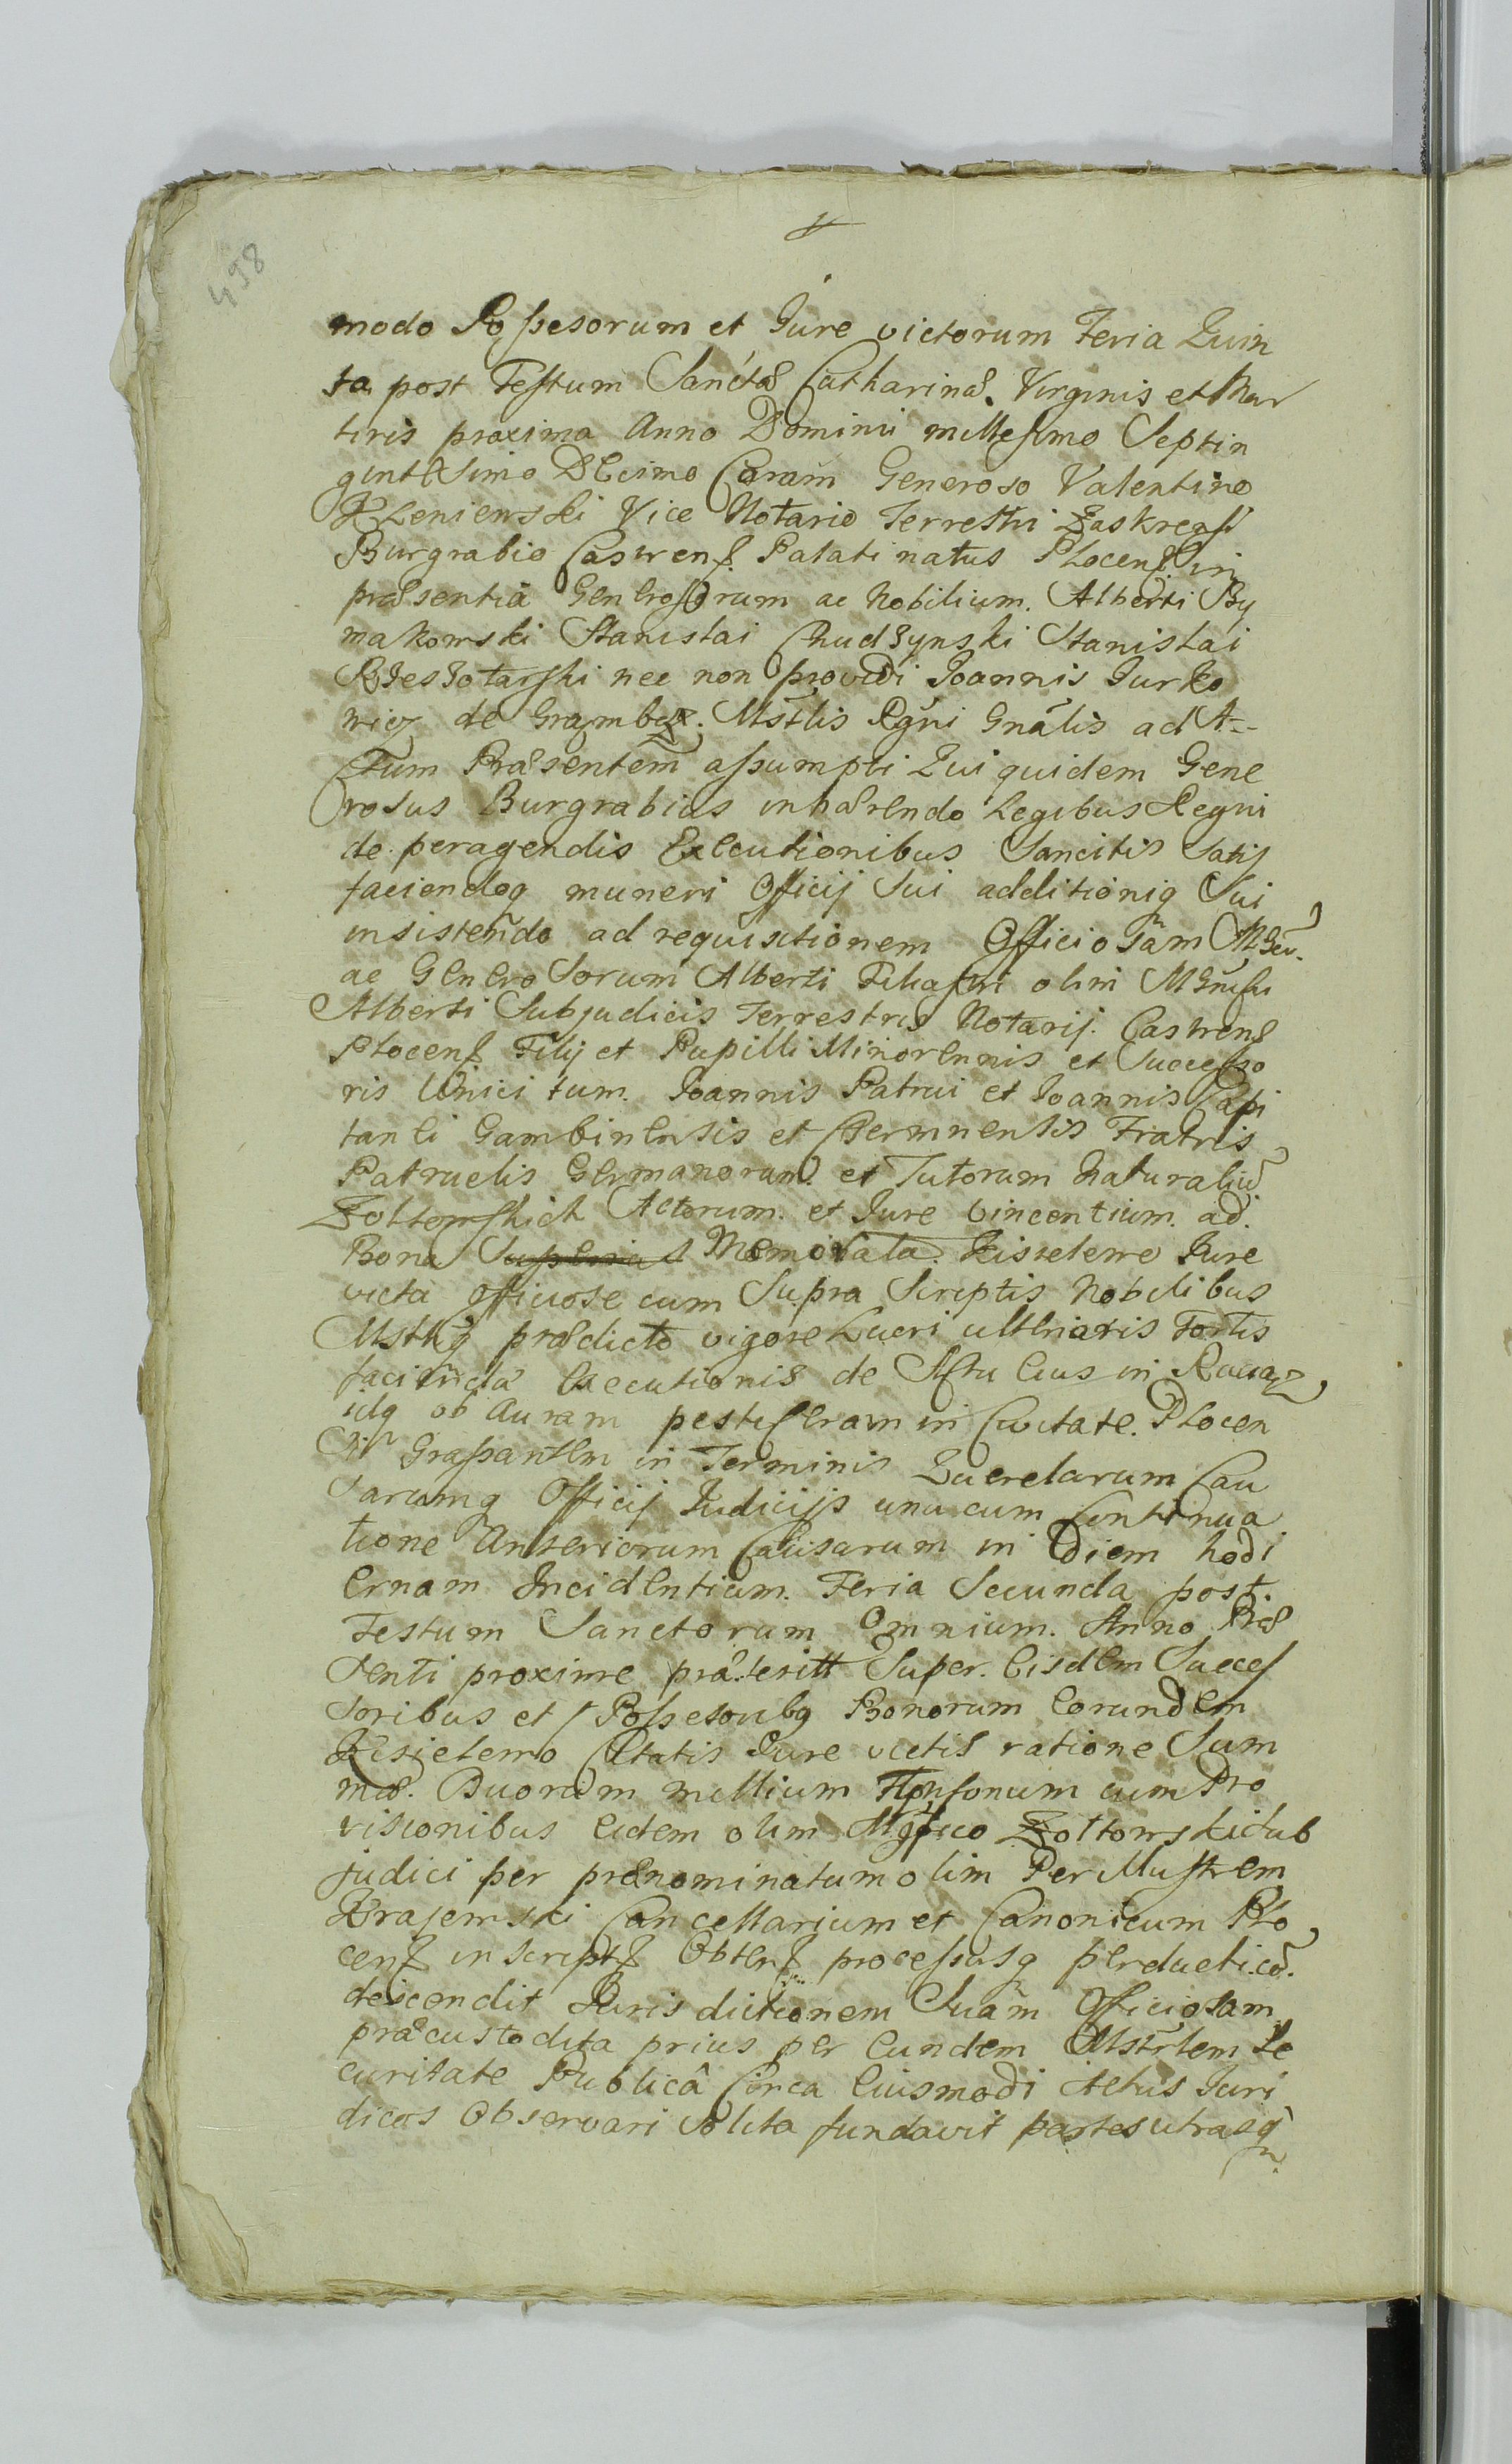 498
modo Possesorum et Jure victorum Feria Quin
ta post Festum Sanctæ Catharinæ Virginis et Mar
tiris proxima Anno Domini millesimo Septin
gentesimo Decimo Coram Generoso Valentino
Vice Notario Terrestri
Burgrabio Castrens. Palatinatus Plocens. in
præsentia Generosorum ac Nobilium. Alberti By
makowski Stanislai Chudzynski Stanislai
nec non providi Joannis Jurko
wicz de Mstlis Rgni Gnalis ad A-
ctum Præsentem assumpti Qui quidem Gene
rosus Burgrabius inhærendo Legibus Regni
de peragendis Executionibus Sancitis Satis
faciendoq muneri Officij Sui additioniq Sui
insistendo ad requisitionem Officiosam
ac Generosorum Alberti olim
Alberti Subjudicis Terrestris Notarij Castrens
Plocens Filij et Pupilli Minorennis et Successo
ris Unici tum. Joannis Patrui et Joannis Capi
tanei Gambinensis et Fratris
Patruelis Germanorum et Tutorum Naturaliu
Zoltowskich Actorum. et Jure vincentium. ad.
Bona Memorata. Kisielewo Jure
victa officiose cum Supra Scriptis Nobilibus
præ dicto vigore Lucri ulterioris Fortis
faciendæ Executionis de Actu Eius in
ob Auram pestiferam in Civitate. Plocen
Grassantem in Terminis Querelarum Cau
sarumq Officij Judicijs unacum Continua
tione Anteriorum Causarum in Diem hodi
ernam Incidentium. Feria Secunda post
Festum Sanctorum Omnium. Anno Præ
senti proxime præterit Super. Eisdem Succes
soribus et Possesoribq Bonorum Eorundem
ratione Sum
mæ. Duorum millium Florenorum cum Pro
visionibus Eidem olim Zoltowski Sub
judici per prænominatum olim Per Illustrem
Krajewski Cancellarium et Canonicum Plo
cens inscript Obtens processusq perducti
descendit Jurisdictionem Suam Officiosam
præcustodita prius per Eundem Mstrlem Se
curitate Publicâ Circa Eiusmodi Actus Juri
dicos Observari Solita fundavit partes utrasq